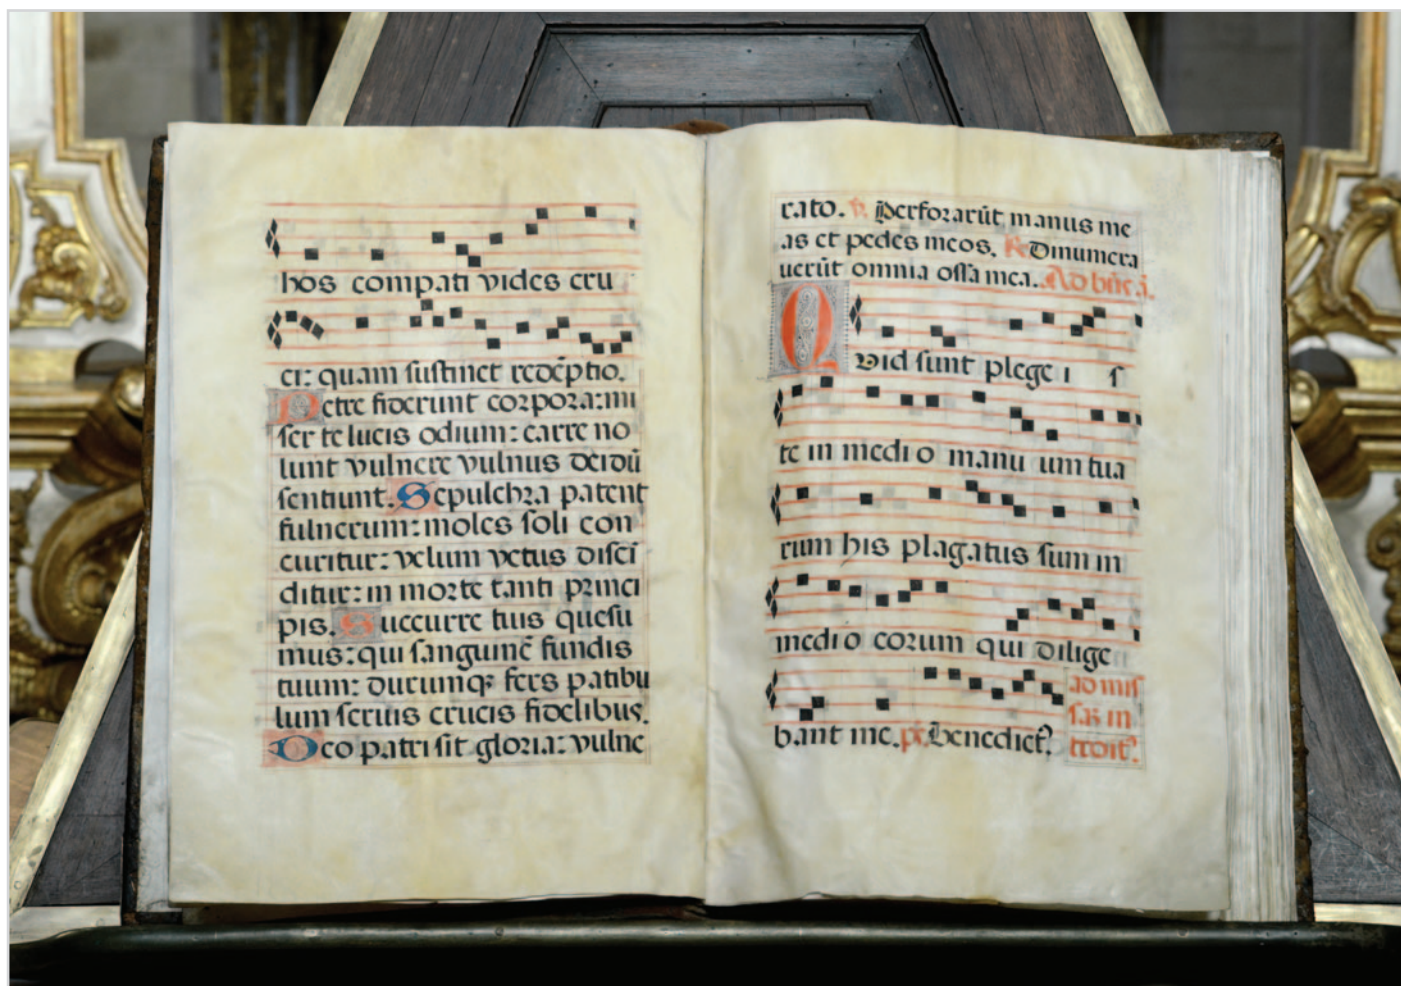 hos compati vides cru
ci: quam sustinet redẽptio.
Petre fiderunt corpora: mi
ser te lucis odium: carre no
lunt vulnere vulnus deidũ
sentiunt. Sepulchra patent
fulnerum: moles soli con
curitur: velum vetus disci
ditur: in morte tanti princi
pis. Succurre tuis quesu
mus: qui sanguinẽ fundis
tuum: durumqꝫ fers patibu
lum seruis crucis fidelibus.
Deo patri sit gloria: vulne
rato. ℣. Perforarũt manus me
as et pedes meos. ℟. Dinumera
uerũt omnia ossa mea. Ad bñ ã.
Qvid sunt plage i s
te in medi o manu um tua
rum his plagatus sum in
medi o eorum qui dilige
bant me. ps. Benedict⁹.
ad mis
sas in
troit⁹.